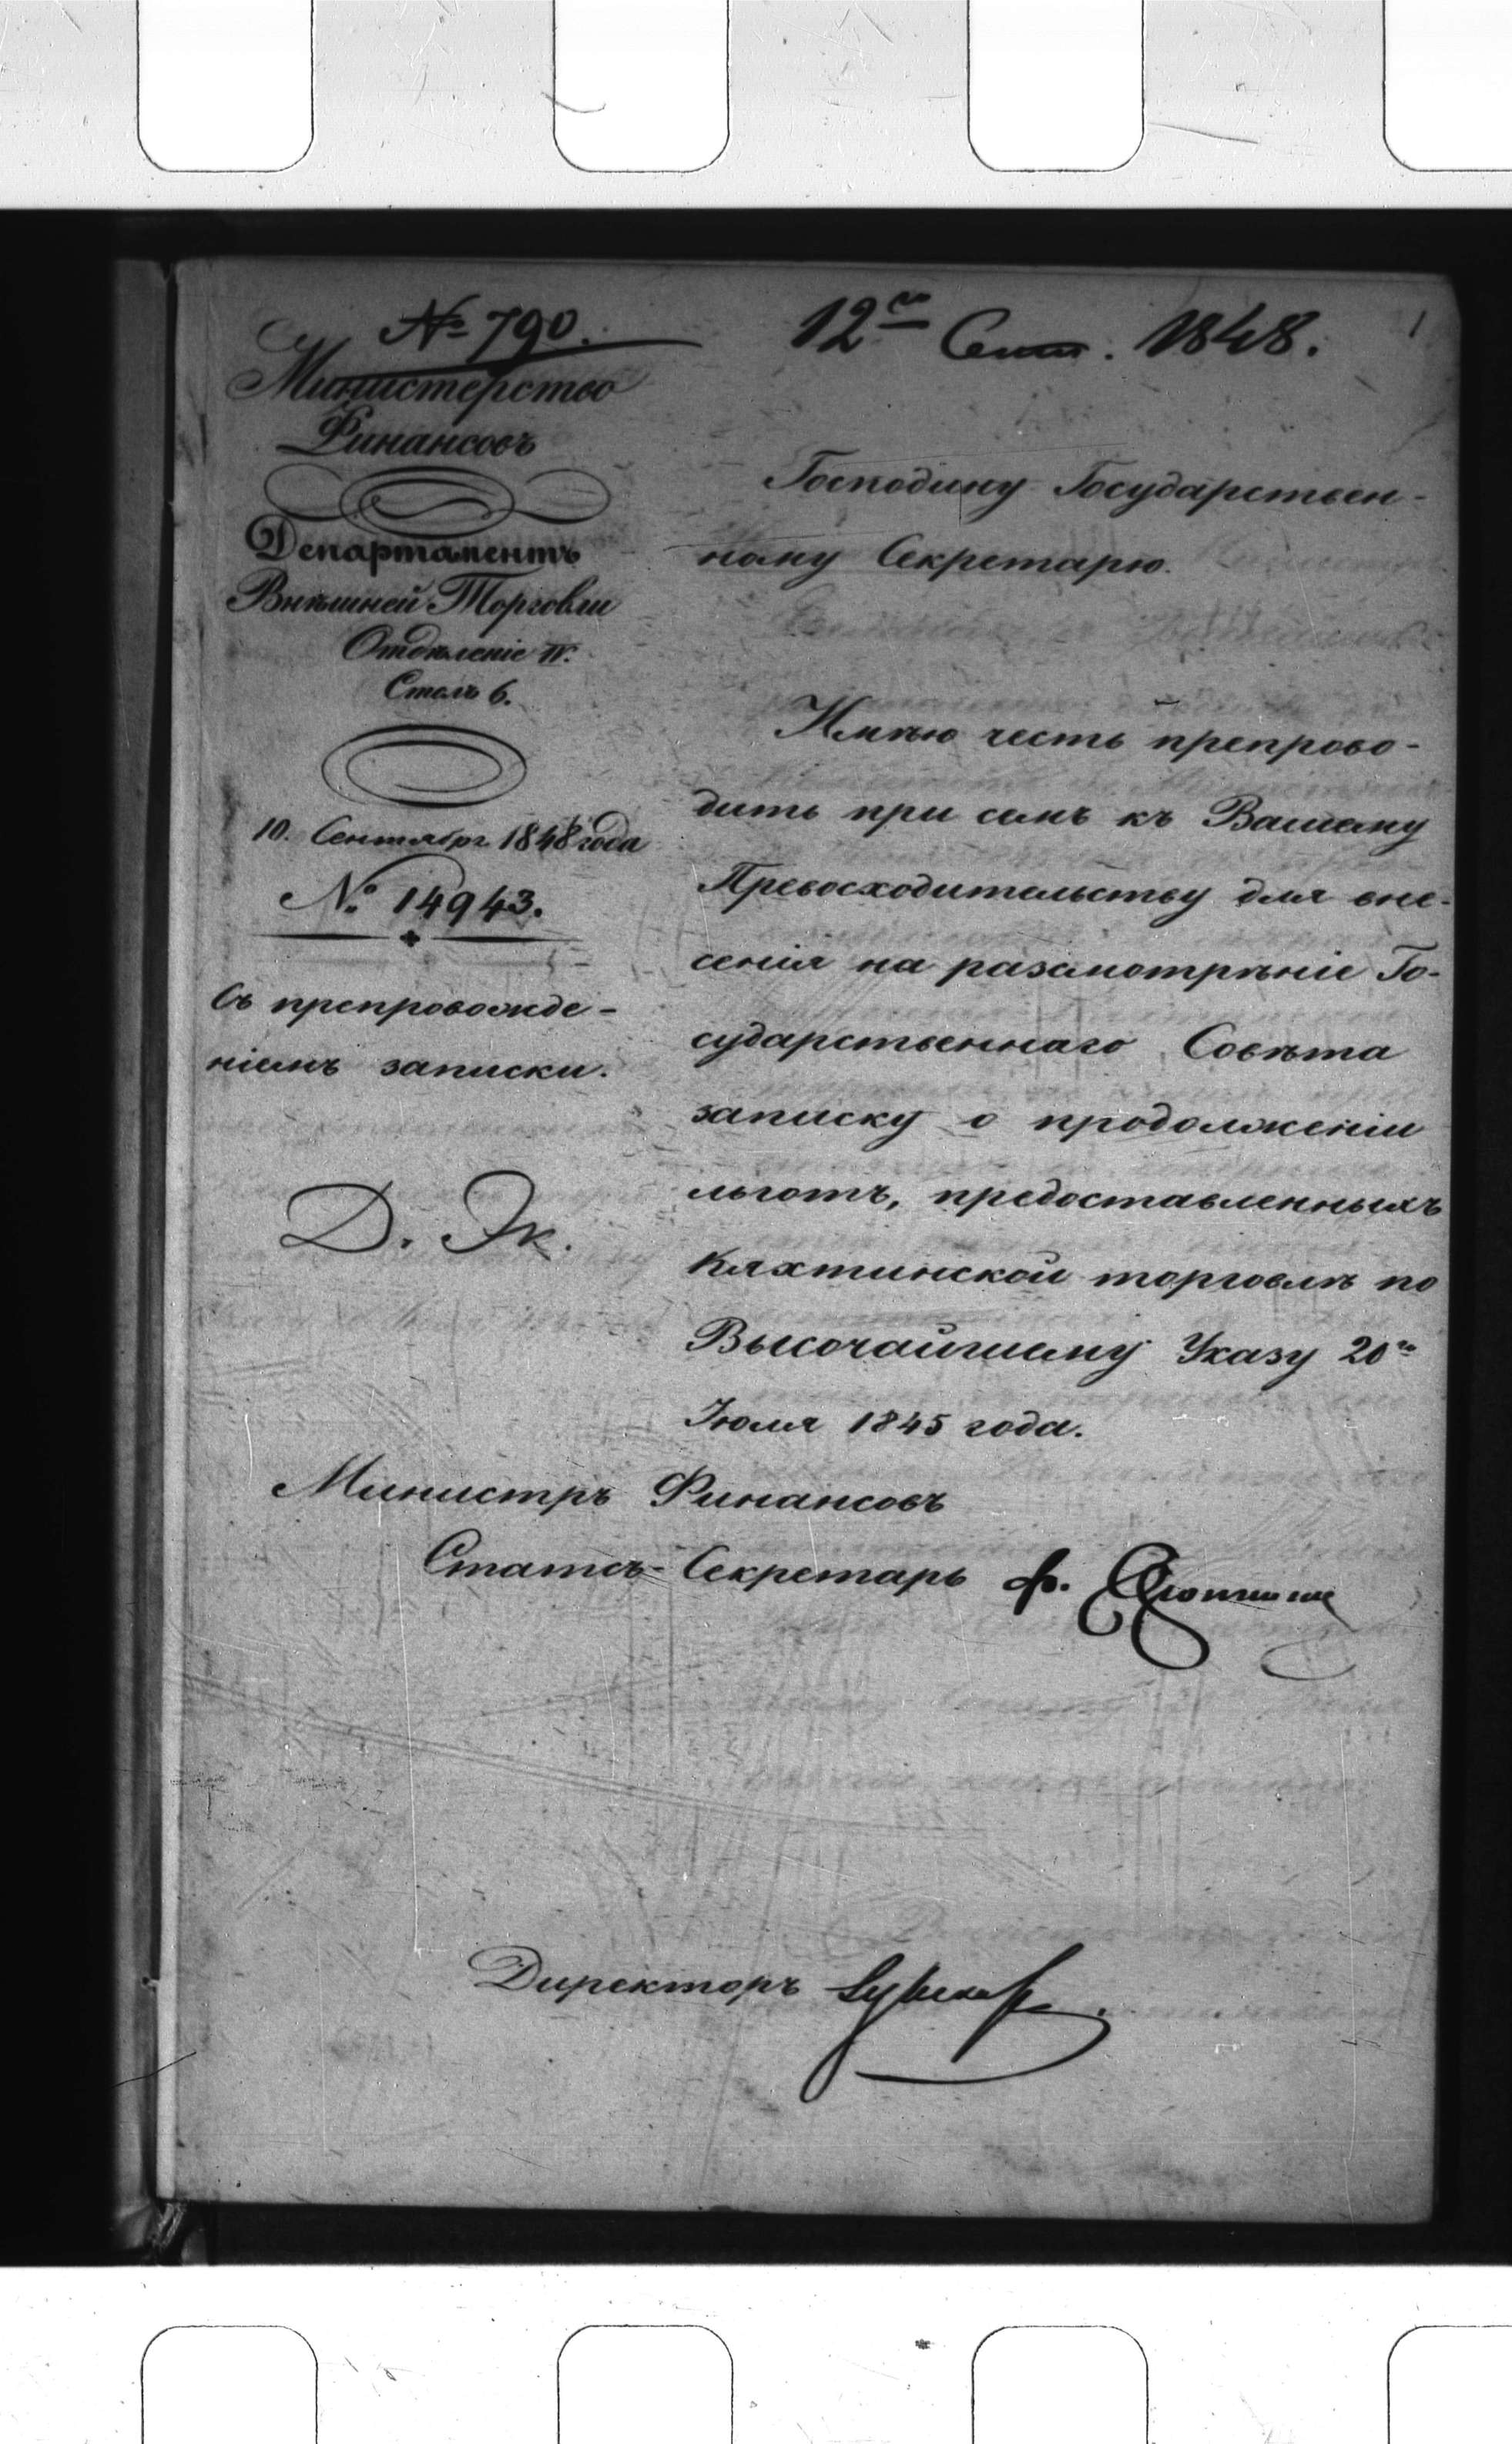 № 790.
12го Сент. 1848.
1
Министерство
Финансовъ
Департаментъ
Внѣшней Торговли
Отдѣленіе IV.
Столъ 6.
10. Сентября 1848 года
№. 14943.
Съ препровожде-
ніемъ записки.
Д. Эк.
Господину Государствен-
ному Секретарю.
Имѣю честь препрово-
дить при семъ къ Вашему
Превосходительству для вне-
сенія на разсмотрѣніе Го-
сударственнаго Совѣта
записку о продолженіи
льготъ, предоставленныхъ
Кяхтинской торговлѣ по
Высочайшему Указу 20го
Іюля 1845 года.
Министръ Финансовъ
Статсъ-Секретарь Ф.
Директоръ